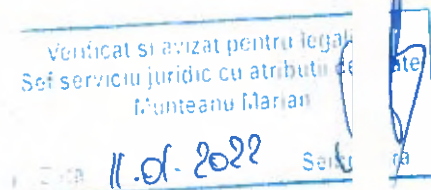 Verificat si avizat pentru legali
Sef serviciu juridic cu atributii de ate
Munteanu Marian
Data 11.01.2022 Se ra